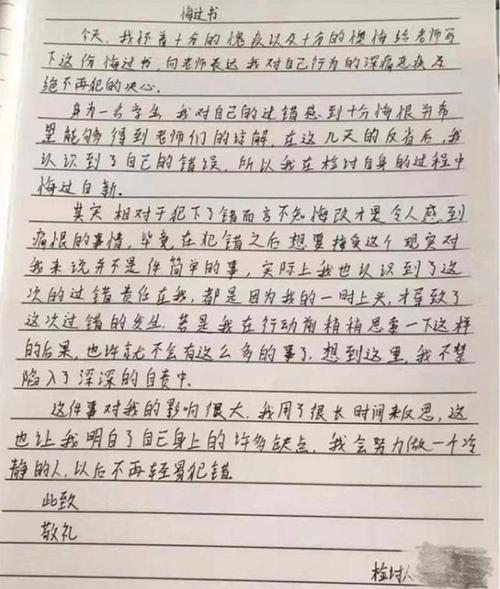 悔过书
今天，我怀着十分的愧疚以及十分的懊悔给老师写
下这份悔过书，向老师表达我对自己行为的深痛恶疾及
绝不再犯的决心。
身为一名学生，我对自己的过错感到十分悔恨并希
望能够得到老师们的谅解，在这几天的反省后，我
认识到了自己的错误，所以我在检讨自身的过程中
悔过自新。
其实相对于犯下了错而言不知悔改才是令人感到
痛恨的事情，毕竟在犯错之后想要接受这个现实对
我来说并不是件简单的事，实际上我也认识到了这
次的过错责任在我，都是因为我的一时上头，才导致了
这次过错的发生，若是我在行动前稍稍思索一下这样
的后果，也许就不会有这么多的事了，想到这里，我不禁
陷入了深深的自责中。
这件事对我的影响很大，我用了很长时间来反思，这
也让我明白了自己身上的许多缺点，我会努力做一个冷
静的人，以后不再轻易犯错。
此致
敬礼
检讨人